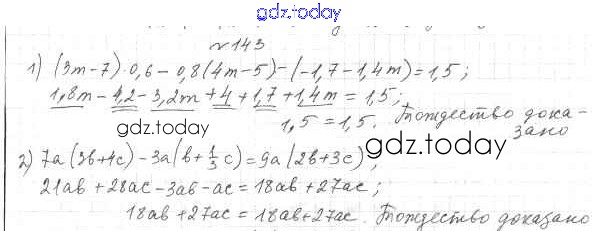 gdz.today
№143
1) (3m-7)·0,6-0,8(4m-5)-(-1,7-1,4m)=1,5;
1,8m-4,2-3,2m+4+1,7+1,4m=1,5;
1,5=1,5. Тождество дока-
зано
gdz.today
gdz.today
2) 7a(3b+4c)-3a(b+1/3c)=9a(2b+3c);
21ab+28ac-3ab-ac=18ab+27ac;
18ab+27ac=18ab+27ac. Тождество доказано